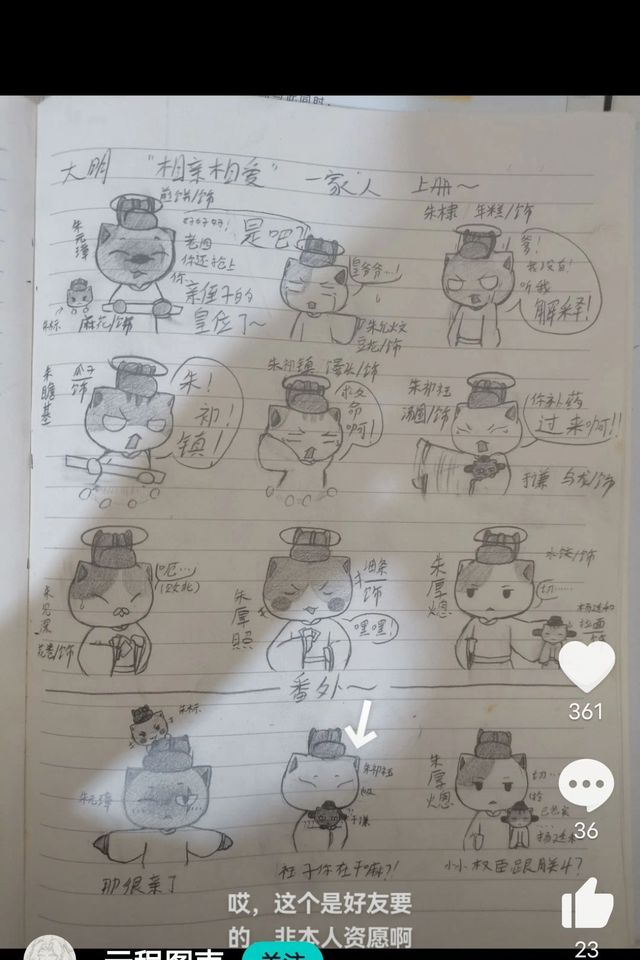 大明 "相亲相爱" 一家人 上册～
煎饼/饰
朱元璋
好好好!
老四
你还抢上
你
亲侄子的
皇位了～
朱标
麻花/饰
是吧?
皇爷爷…!
朱允炆
豆花/饰
朱棣 年糕/饰
爹!
我没有!
听我
解释!
朱瞻基
瓜子
饰
朱!
初!
镇!
朱祁镇
救
命
啊!
朱祁钰
汤圆/饰
你补药
过来啊!!
于谦 乌龙/饰
朱见深
花卷/饰
呃…
朱厚照
油条
饰
嘿嘿!
朱厚熜
切……
拉面
番外～
朱标
朱元璋
那很亲了
朱祁钰
于谦
钰子你在干嘛?!
朱厚熜
切…
小小权臣跟朕斗?
361
36
23
哎，这个是好友要
的，非本人资愿啊
关注